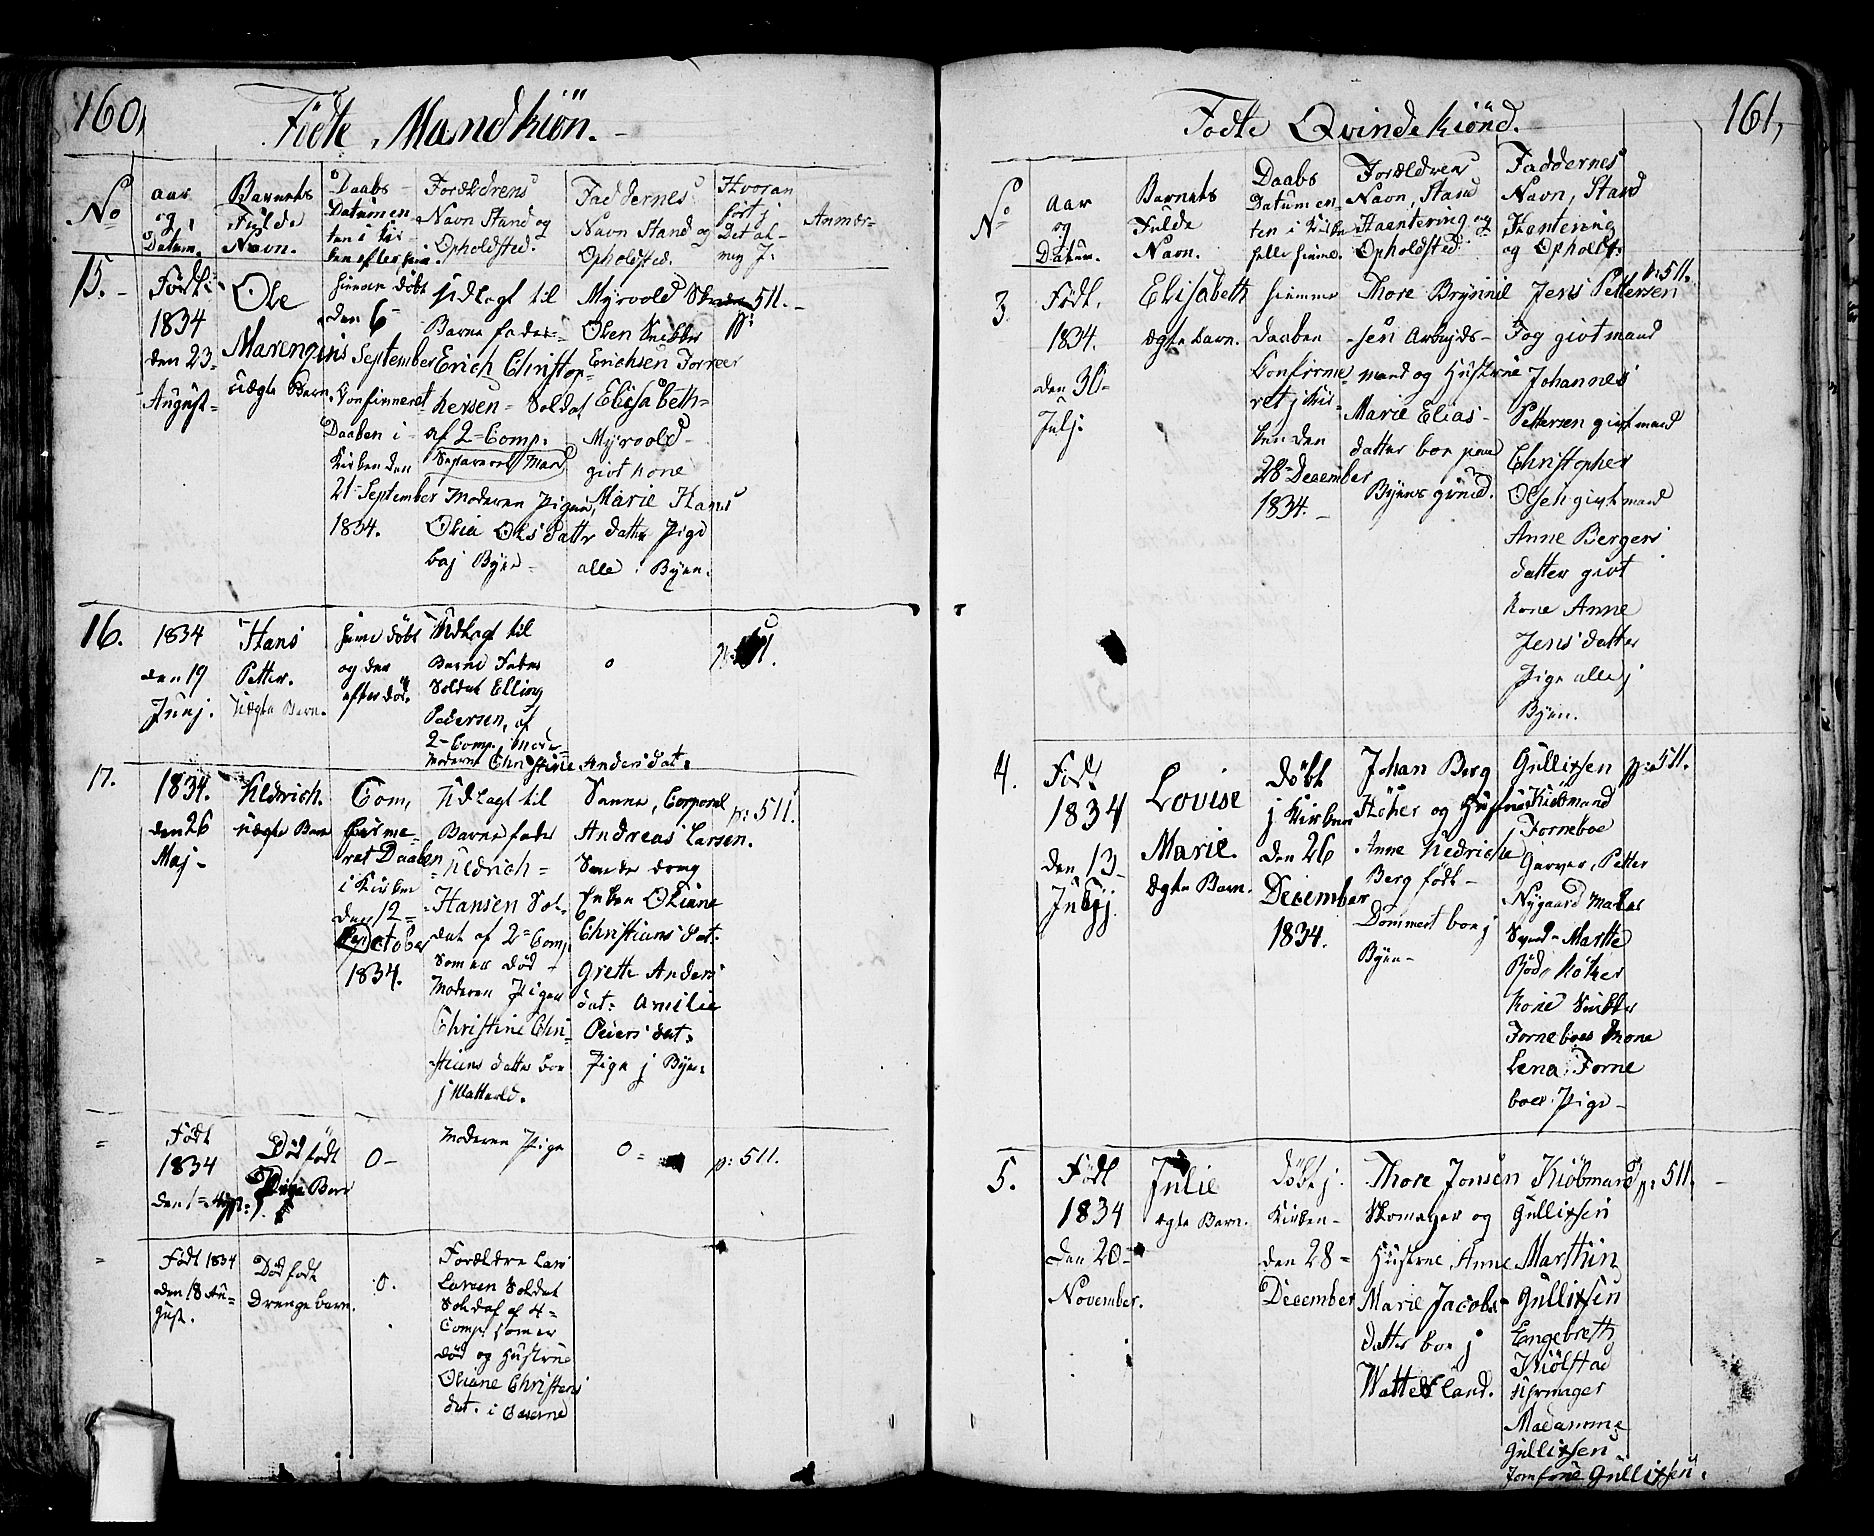 160,
Födte Mandkiön.
No
aar
og
Datum.
Barnets
Fulde
Navn.
Daabs
Datum en
ten i Kir
ken eller hiem.
Forældrens
Navn Stand og
Opholdsted.
Faddernes
Navn Stand og
Opholdsted.
Hvoran
fört j
Det al-
mey J:
Anmær-
15.
Födt
1834
den 23
August
Ole
Marengius
uægte Barn.
hiemme döbt
den 6
September
Confirmeret
Daaben i
Kirken den
21 September
1834.
Udlagt til
Barne fader
Erich Christop
hersen Soldat
af 2 Comp:
Moderen Pigen
Olia Ols Datter
boj Byen
Myrvold
Olsen Snedker
Erichsen
Elisabeth
Myrvold
givt kone
Marie Hans
datter Pige
alle i Byen.
511.
p:
16.
1834
den 19
Junj.
Hans
Petter.
Uægte Barn.
hieme döbt
og der
efter död.
Udlagt til
Barne Fader
Soldat Elling
Pedersen, af
2 Comp.
Moderne Christine Anders dat:
0
17.
1834.
den 26
Maj
Uldrich.
uægte Barn
Con,
firme
ret Daaben
i Kirken
den 12
October
1834.
Udlagt til
Barne fader
Uldrich
Hansen Sol,
dat af 2 Comp
Som er död
Moderen Pigen
Christine Chri
stians datter boe
j Watterld.
Sanne, Corporal
Andreas Larsen.
Enken Oliane
Christians dat.
Grette Anders
dat: Amilie
Peiers dat:
Pige j Byen:
p: 511.
=
Födt
1834
den 1
Död födt
Pige Barn
0
Moderen Pige
0
p: 511.
=
Födt 1834
den 18 Au
gust.
Död födt
Drenge barn.
0.
Forældre Lars
Larsen Soldat
Soldat af 4
Comp. som er
död og Hustrue
Oliane Christens
dat. i Caserne
161,
Födte Qvindekiönd.
No
Aar
og
Datum.
Barnets
Fulde
Navn.
Daabs
Datum en
ten i Kirken
heller hiemme.
Forældrer
Navn, Stand
Haantering og
Opholdsted
Faddernes
Navn, Stand
Hantering
og Opholdt.
3.
Födt.
1834.
den 30
Julj.
Elisabeth
ægte Barn.
hiemme
daaben
Confirme
ret j Kir
ken den
28 December
1834.
Thore Brynnel
sen Arbejds
mand og Hustrue
Marie Elias
datter boe paa
Byens grund.
Jens Pettersen
Fog givt mand
Johannes
Pettersen givt mand
Christopher
Olsen givt mand
Anne Bergers
datter givt
kone Anne
Jens datter
Pige alle j
Byen.
p: 511.
4.
Födt
1834
den 13
Julj
Lovise
Marie.
ægte Barn.
Döbt
j Kirken
den 26
December
1834.
Johan Berg
Höker og Hustrue
Anne Uldriche
Berg födt
Dommert boe j
Byen
Gullixsen
Kiöbmand
j Forneboe
Garver, Petter
Nygaard Maler
Svend Martte
Höker
kone Snedker
Forneboes kone
Lena Forne
boes Pige
p: 511.
5.
Födt
1834
den 20
November.
Julie
ægte Barn.
Döbt j
Kirken
den 28
December
Thore Jonsen
Skomager og
Hustrue Anne
Marie Jacobs
datter boe j
Watteland.
Kiöbmand
Gullixsen
Marthin
Gullixsen
Engebreth
Kiölstad
Uhrmager
Madamme
Gullixsen
Jomfrue Gullixsen.
p: 511.